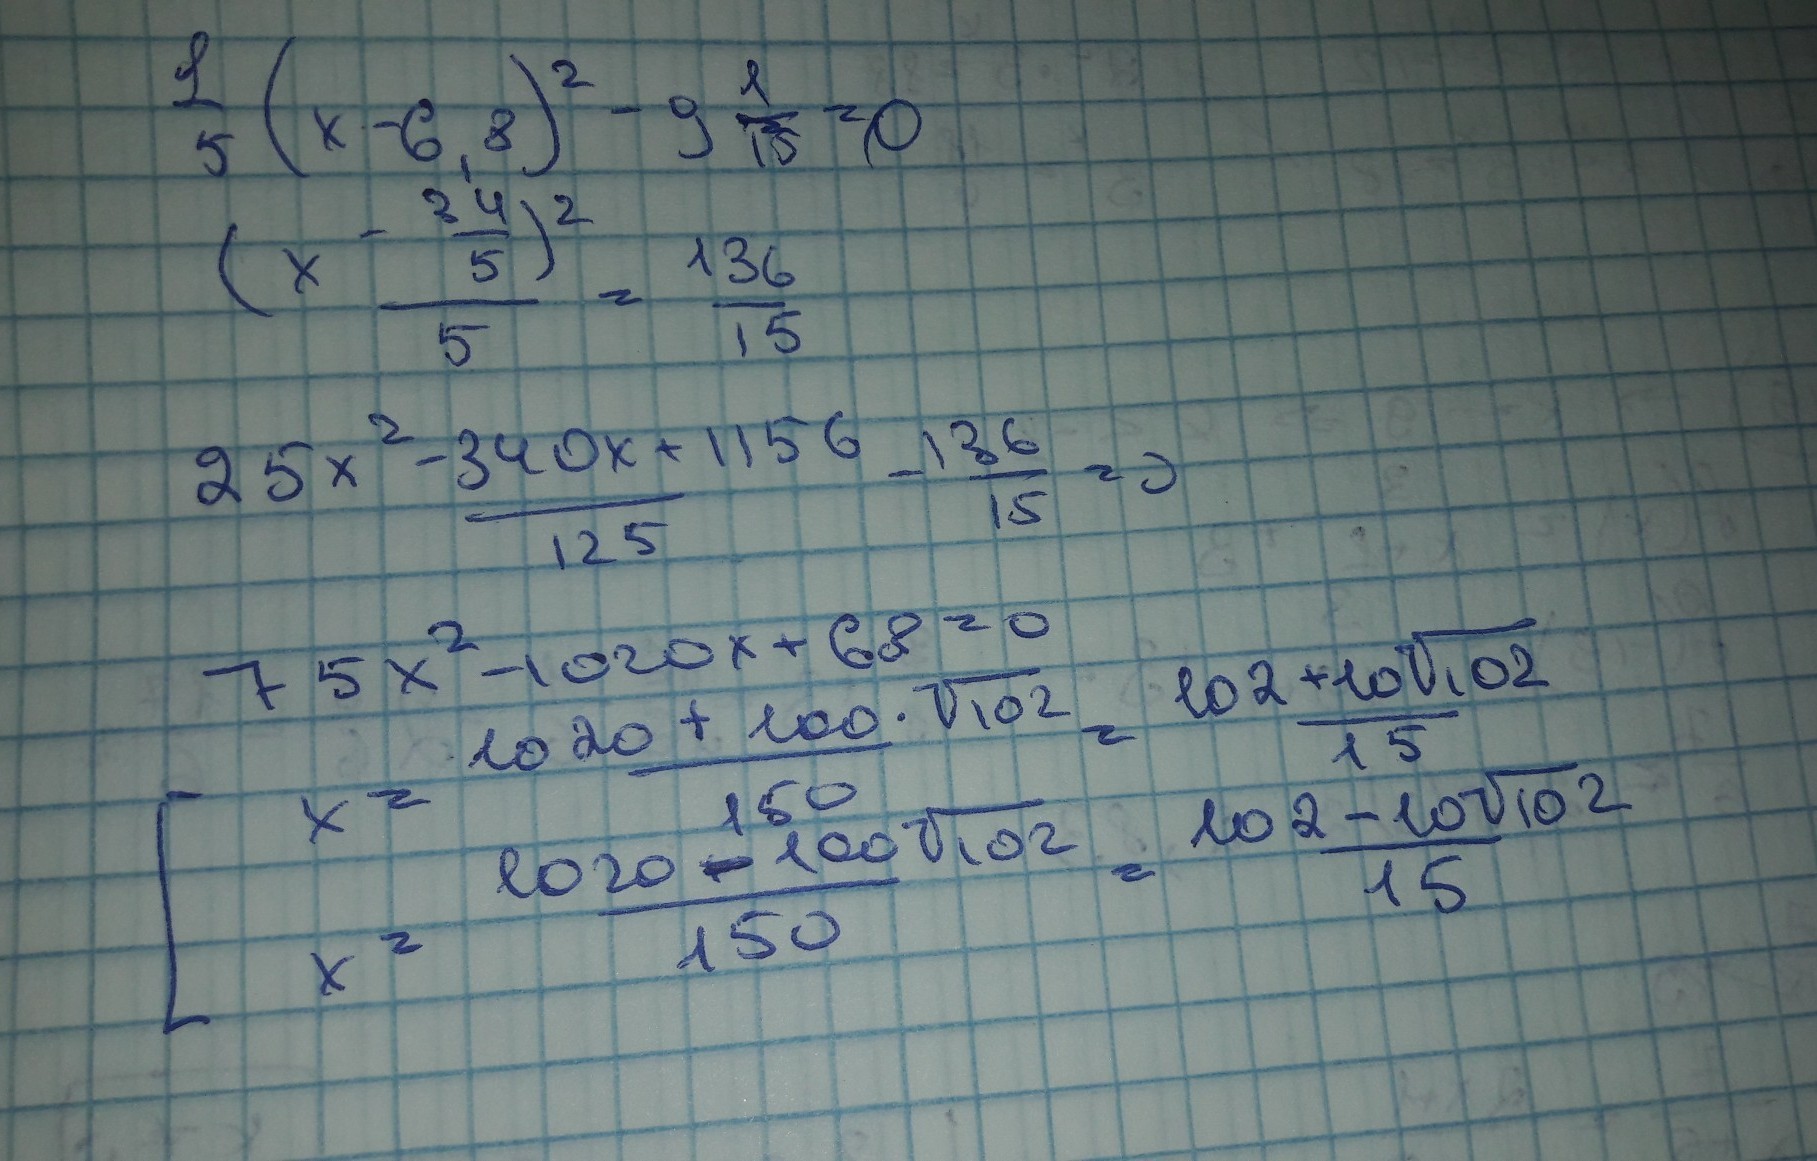 1/5 (x - 6,8)² - 9 1/15 = 0
(x - 34/5)² / 5 = 136/15
25x² - 340x + 1156 / 125 - 136/15 = 0
75x² - 1020x + 68 = 0
x = 1020 + 100 · √102 / 150 = 102 + 10√102 / 15
x = 1020 - 100√102 / 150 = 102 - 10√102 / 15